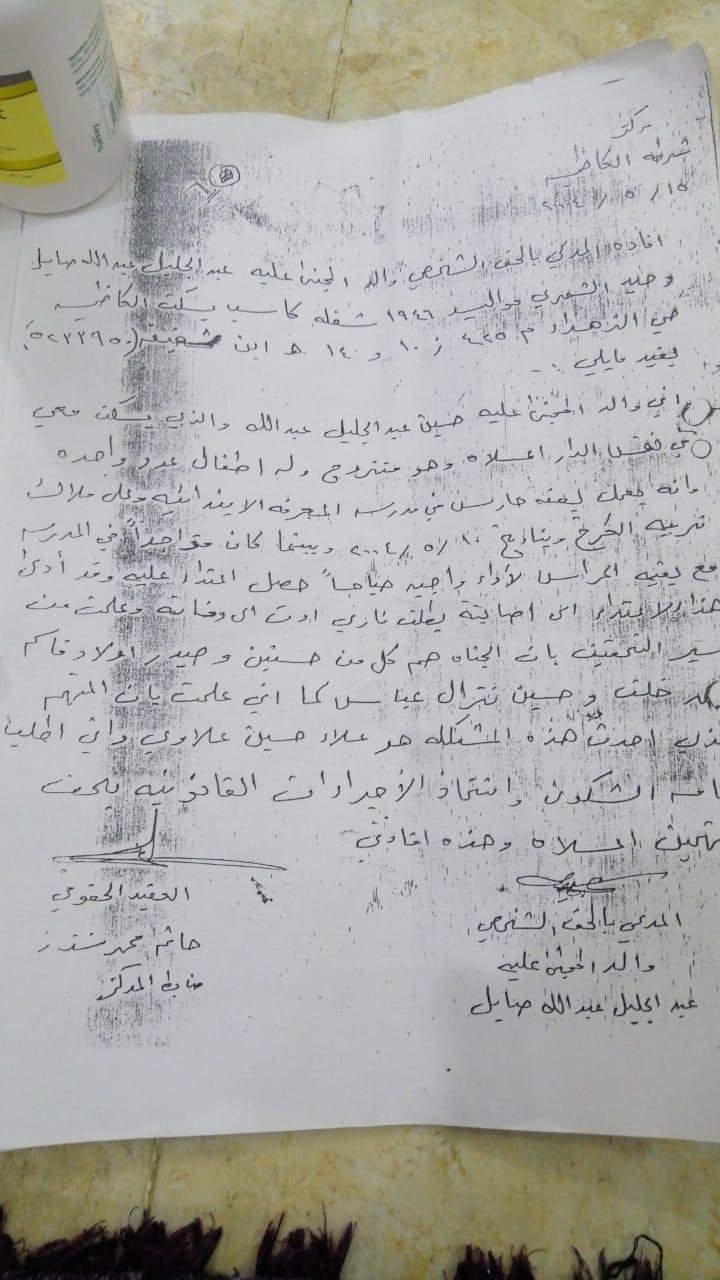 مركز
شرطة الكاظميه
١٥ / ٥ / ٢٠٠٤
افاده المدعي بالحق الشخصي والد المجنى عليه عبد الجليل عبد الله صايل
الشمري مواليد ١٩٤٦ شغله كاسب يسكن الكاظميه
حي الزهراء م ٤٢٥ ز ١٠ و ١٤ هـ ابن
يفيد مايلي
اني والد المجنى عليه حسين عبد الجليل عبد الله والذي يسكن معي
في نفس الدار اعلاه وهو متزوج وله اطفال عدد واحده
وانه يعمل بصفته حارس في مدرسه المعرفه الابتدائيه وعلى ملاك
تربيه الكرخ وبتاريخ ١٠ /٥/ ٢٠٠٤ وبينما كان متواجداً في المدرسه
مع بقيه الحراس لأداء واجبه صباحاً حصل اعتداء عليه وقد أدى
هذا الاعتداء الى اصابته بطلق ناري ادت الى وفاته وعلمت من
سير التحقيق بان الجناه هم كل من حسنين وحيدر اولاد قاسم
خلف و حسين نزال عباس كما اني علمت بان المتهم
الذي احدث هذه المشكله هو علاء حسين علاوي واني اطلب
الشكوى واتخاذ الأجراءات القانونيه بحق
اعلاه وهذه افادتي
المدعي بالحق الشخصي
والد المجنى عليه
عبد الجليل عبد الله صايل
العقيد الحقوقي
حاتم محمد
ضابط المركز